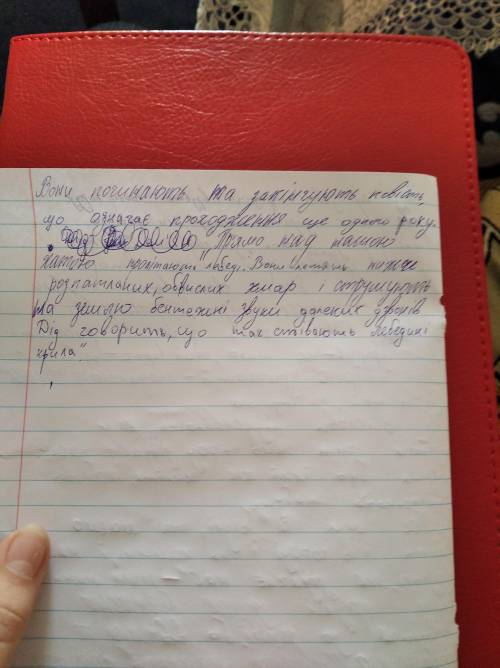 Вони починають та закінчують повість,
що означає проходження ще одного року.
"Прямо над нашою
хатою пролітають лебеді. Вони летять нижче
розпатланих, обвислих хмар і струшують
на землю бентежні звуки далеких дзвонів.
Дід говорить, що так співають лебедині
крила".